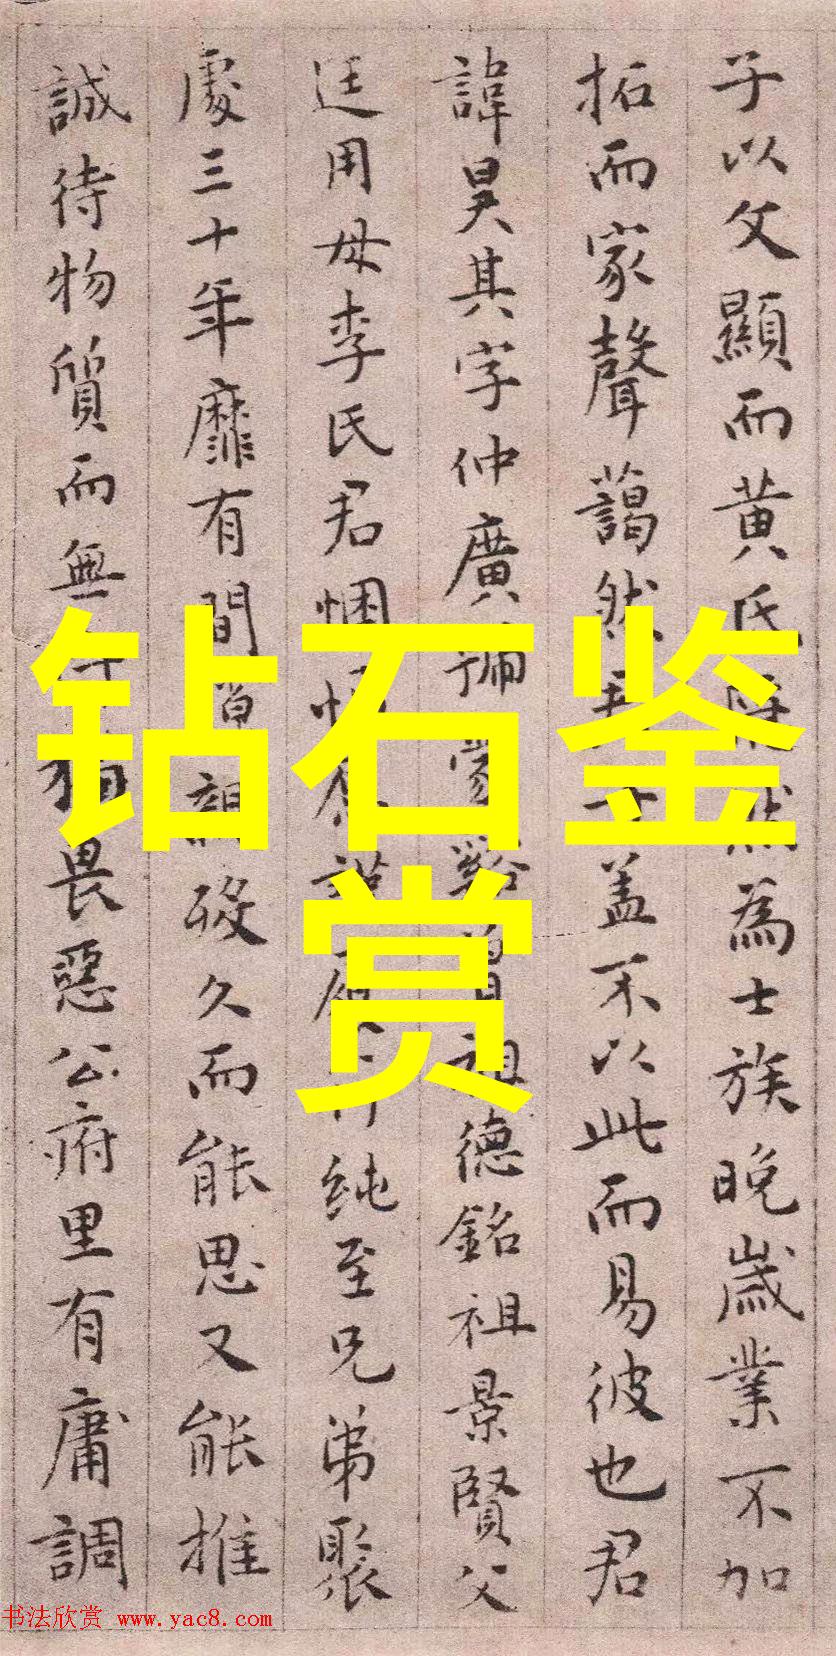 子以父顯而黃氏為士族晚歲業不加
拓而家聲藹然盖不以此而易彼也君
諱昊其字仲廣祖德銘祖景賢父
廷用母李氏君悃純至兄弟聚
處三十年靡有間歿久而能思又能推
誠待物質而無畏惡公府里有庸調
钻石鉴
赏
书法欣赏 www.yac8.com